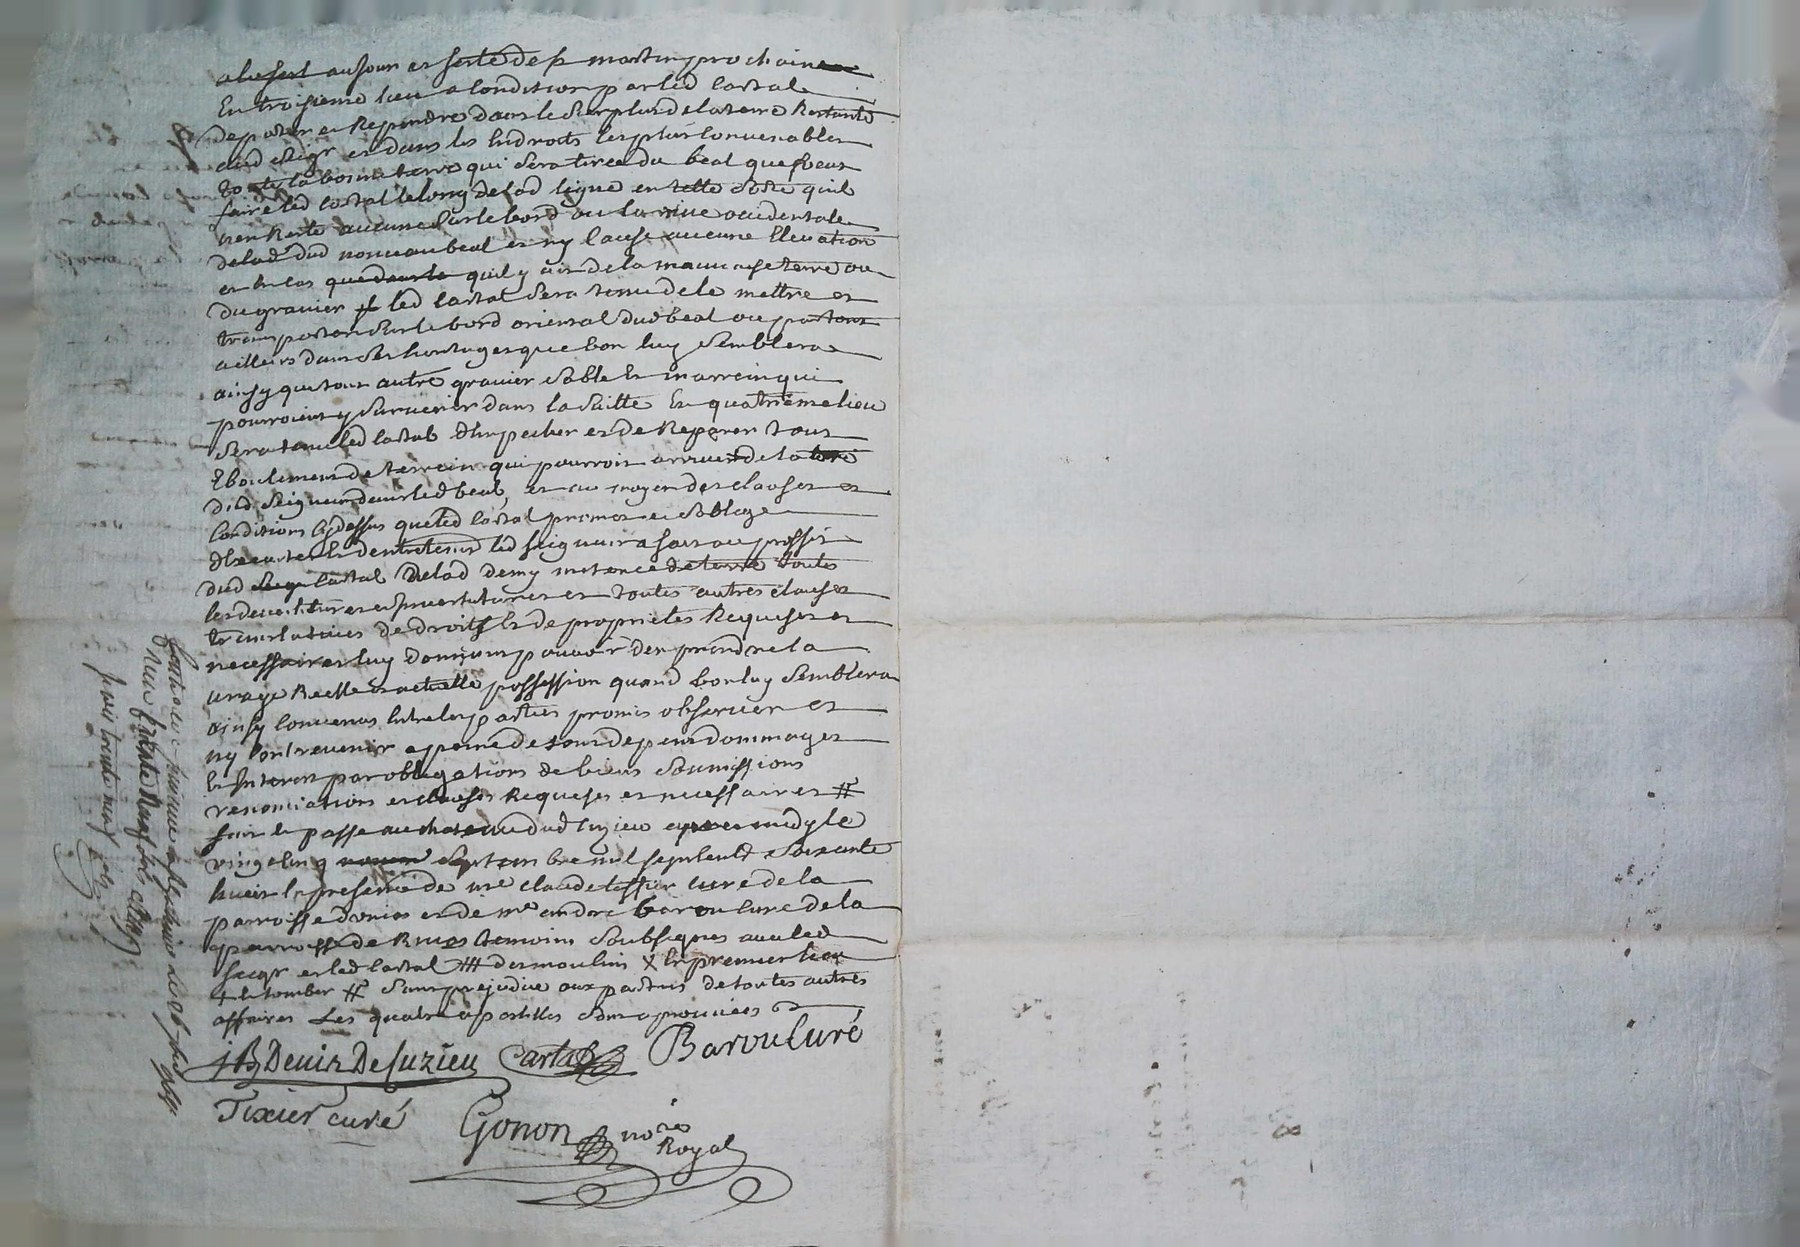 au jour et feste de st martin prochaine
En troisieme lieu a condition par led Cartal
de porter et Rependre dans le surplus de la terre Restante
aud seigr et dans les Endroits les plus convenables
toute la bonne terre qui sera tiree du beal que peut
faire led Cartal le long de lad ligne en telle sorte quil
nen Reste aucune sur le bord ou la rive occidentale
delad dud nouveau beal et ny cause aucune Elevation
et en cas quil y ait de la mauvaise terre ou
du gravier led Cartal sera tenu de le mettre et
transporter sur le bord oriental dud beal ou partout
ailleurs dans ses heritages que bon luy semblera
ainsy que tout autre gravier sable et marrein qui
pourroient y survenir dans la suitte En quatrieme lieu
sera tenu led Cartal d'Empecher et de Reparer tout
Eboulement de terrein qui pourroit arriver de la terre
dud seigneur dans led beal, et au moyen des clauses et
Conditions cy dessus que led Cartal promet et soblige
d'Executer et dentretenir led seigneur a fait au proffit
dud Cartal delad demy meterée de terre toutes
les devestitures investitures et toutes autres clauses
translatives de droits et de proprietés Requises et
necessaires luy donnant pouvoir den prendre la
vraye Reelle et actuelle possession quand bon luy semblera
ainsy convenu Entre les parties promis observer et
ny contrevenir a peine de tous depens dommages
et Interets par obligations de biens soumissions
renonciations et clauses Requises et necessaires #
fait et passé au chateau dud Luzieu apres midy le
vingt cinq septembre mil sept cent soixante
huit En presence de mre claude tessier curé de la
parroisse d'unias et de mre andre barou curé de la
parroisse de Rivas temoins soubsignés avec led
seigr et led Cartal ## des moulins X En premier lieu
+ et tomber # sans prejudice aux parties de toutes autres
affaires Les quatre apostilles sont aprouvées
JB Denis De Luzieu Cartal Barou Curé
Tixier curé Gonon nore
Royal